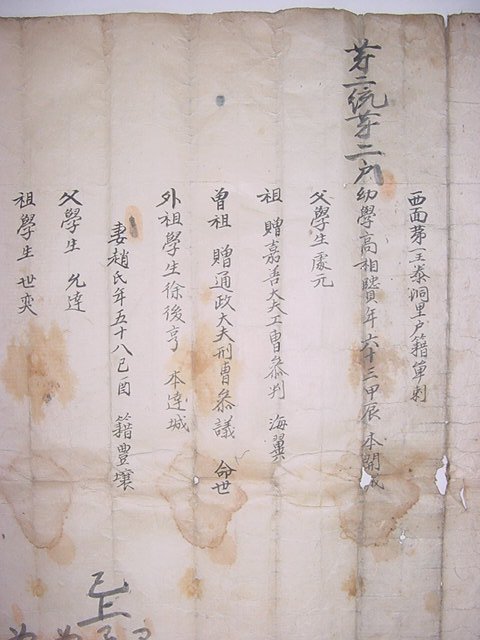 西面苐 泰洞里戶籍單刺
苐二統苐二戶 幼學高相贇年六十三甲辰 本開城
父學生處元
祖 贈嘉善大夫工曹叅判 海翼
曾祖 贈通政大夫刑曹叅議 命世
外祖學生徐後亨 本達城
妻趙氏年五十八己酉 籍豊壤
父學生 允達
祖學生 世奕
已上